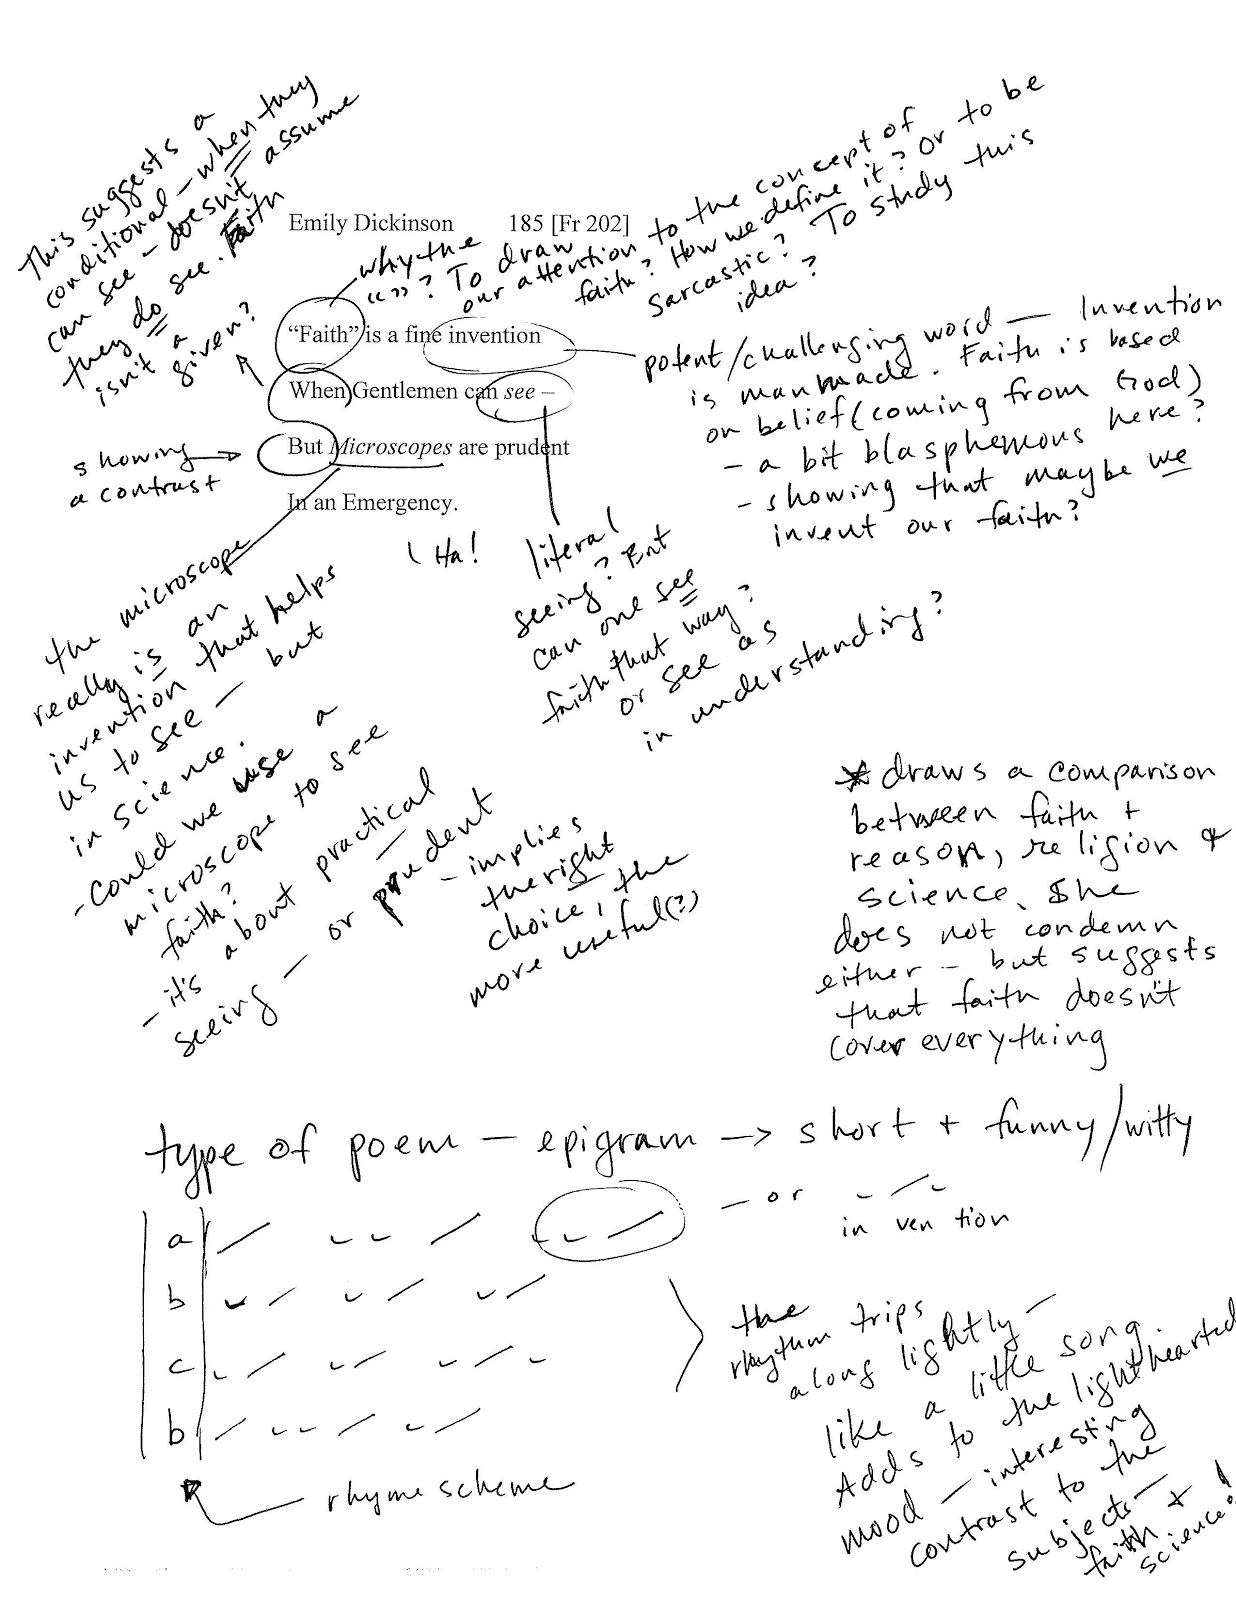 This suggests a
conditional - when they
can see - doesn't assume
they do see. Faith
isn't a
given?
Emily Dickinson 185 [Fr 202]
why the
“ ”? To draw
our attention to the concept of
faith? How we define it? Or to be
sarcastic? To study this
idea?
“Faith” is a fine invention
When Gentlemen can see –
But Microscopes are prudent
In an Emergency.
potent/challenging word — Invention
is manmade. Faith is based
on belief (coming from God)
- a bit blasphemous here?
- showing that maybe we
invent our faith?
showing
a contrast
Ha!
literal
seeing? But
can one see
faith that way?
or see as
in understanding?
the microscope
really is an
invention that helps
us to see — but
in science.
- Could we use a
microscope to see
faith?
- it's about practical
seeing — or prudent
- implies
the right
choice, the
more useful(?)
* draws a comparison
between faith +
reason, religion &
science. She
does not condemn
either - but suggests
that faith doesn't
cover everything
type of poem - epigram -> short + funny/witty
a
— or
in ven tion
b
c
b
rhyme scheme
the
rhythm trips
along lightly —
like a little song.
Adds to the lighthearted
mood — interesting
contrast to the
subjects —
faith +
science!